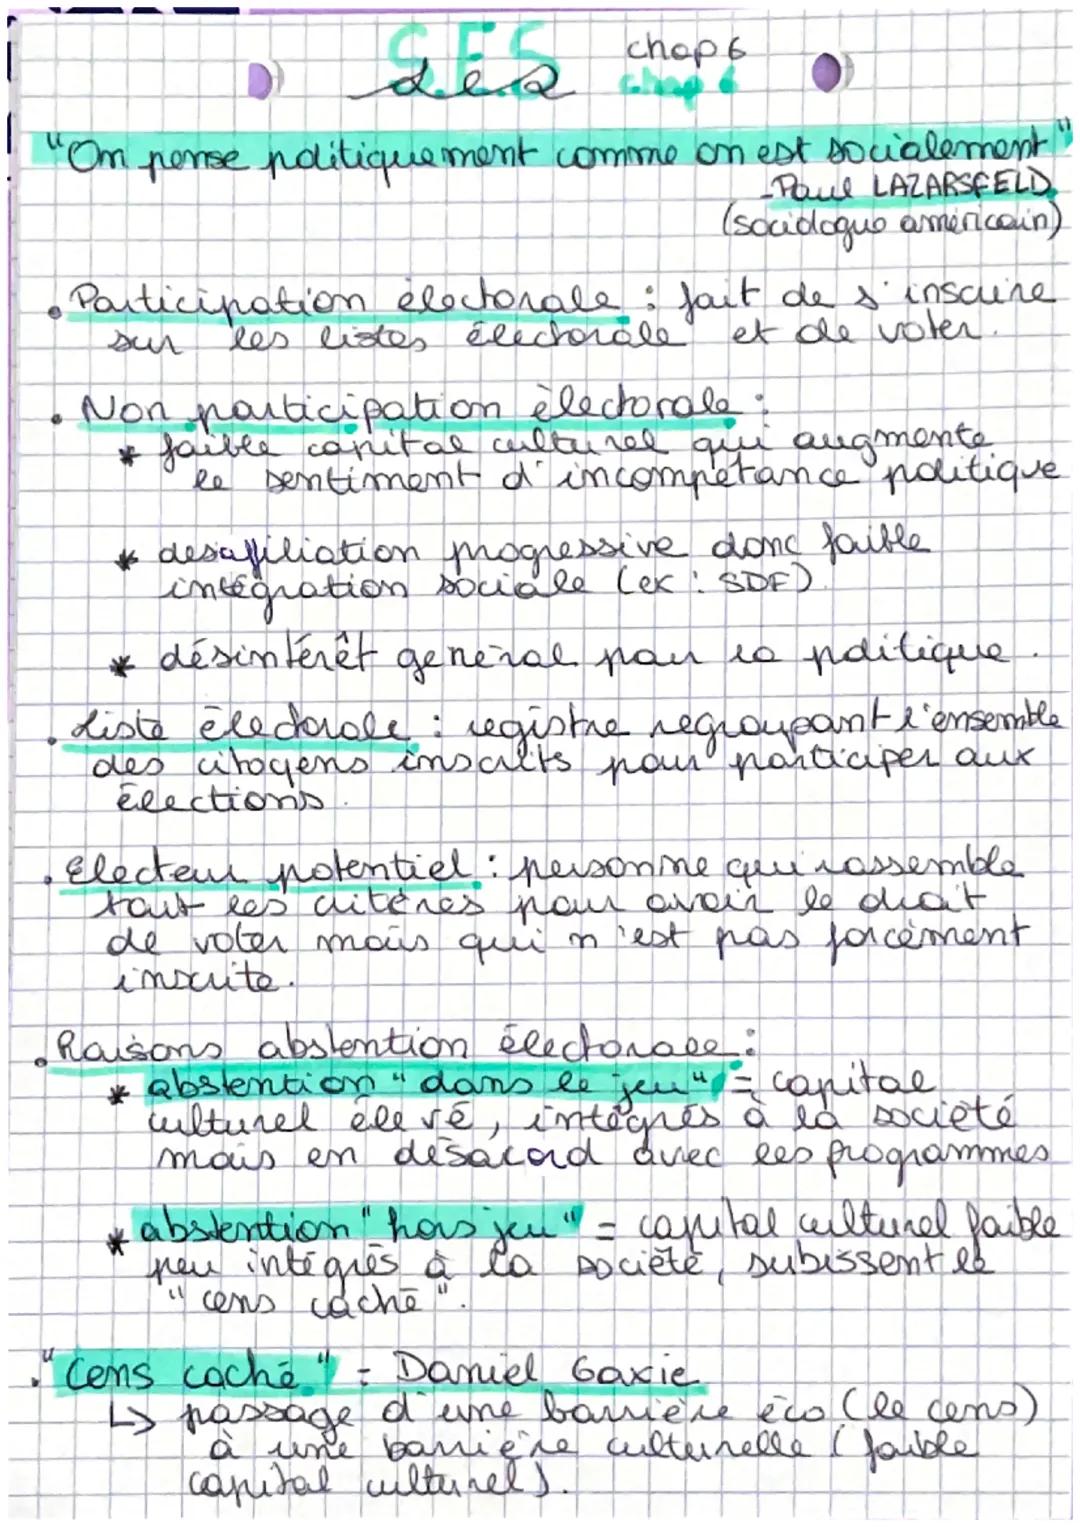 S.E.S
ses chap 6
chap 6
"On pense politiquement comme on est socialement"
- Paul LAZARSFELD
(sociologue américain)
. Participation électorale : fait de s'inscrire
sur les listes électorale et de voter.
. Non participation électorale :
* faible capital culturel qui augmente
le sentiment d'incompétance politique
* desaffiliation progressive donc faible
intégration sociale (ex : SDF).
* désintérêt général pour la politique.
. Liste électorale : registre regroupant l'ensemble
des citoyens inscrits pour participer aux
élections.
. Electeur potentiel : personne qui rassemble
tout les critères pour avoir le droit
de voter mais qui n'est pas forcément
inscrite.
. Raisons abstention électorale :
* abstention "dans le jeu" = capital
culturel élevé, intégrés à la société
mais en désacord avec les programmes
* abstention "hors jeu" = capital culturel faible
peu intégrés à la société, subissent le
"cens caché".
. "Cens caché" = Daniel Gaxie
↳ passage d'une barrière éco (le cens)
à une barrière culturelle (faible
capital culturel).